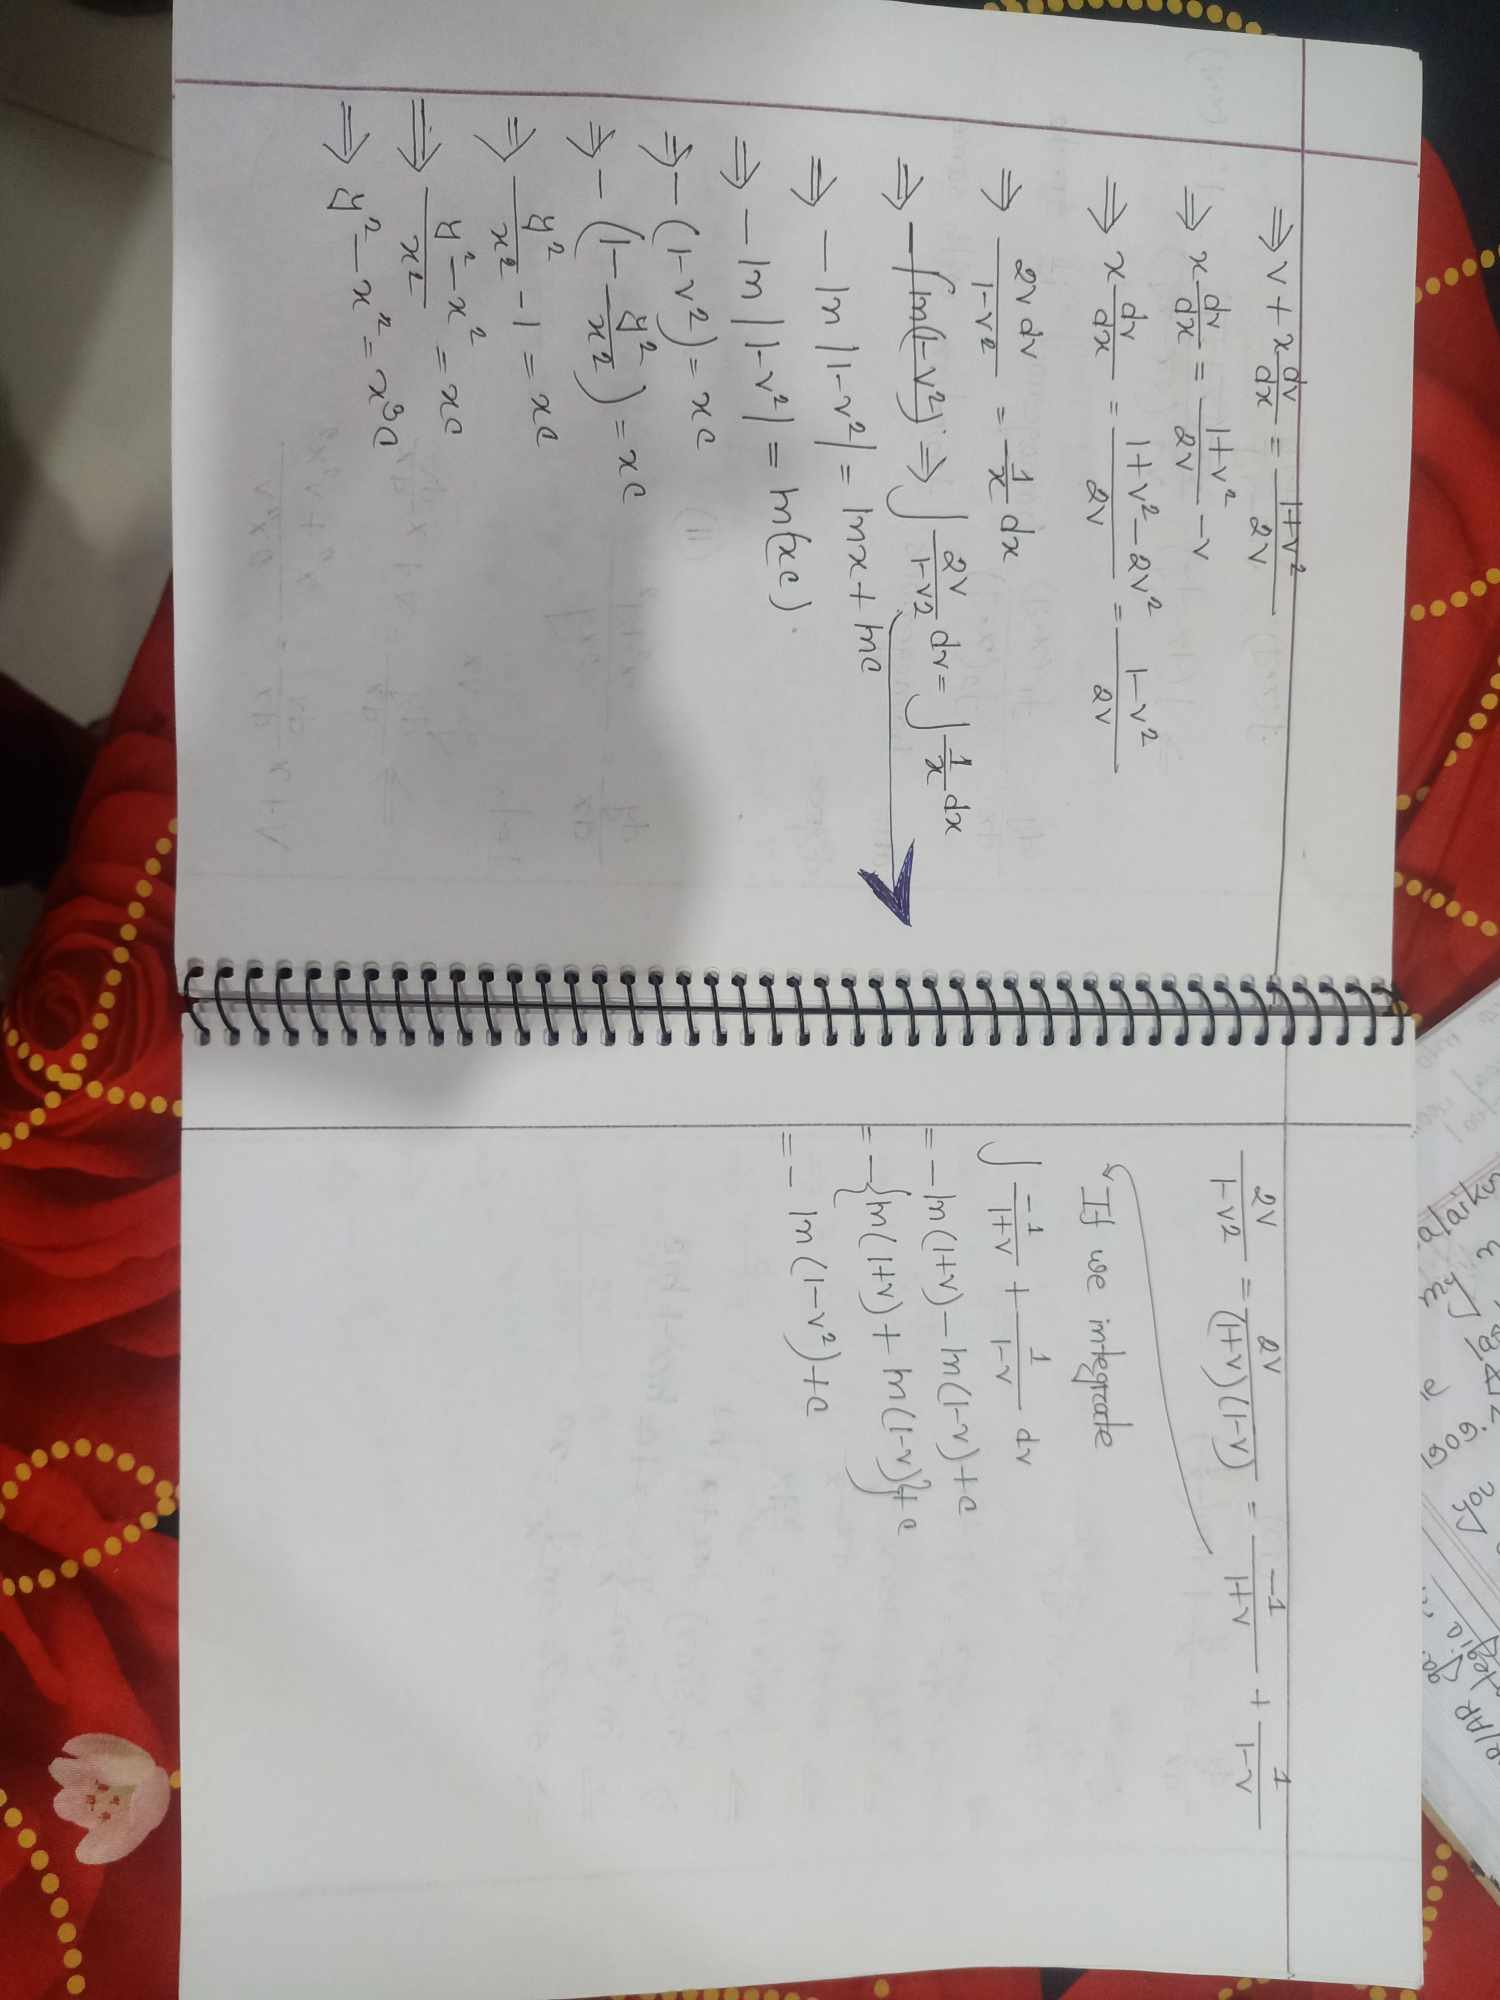 ⇒ v + x dv/dx = (1+v²)/2v
⇒ x dv/dx = (1+v²)/2v - v
⇒ x dv/dx = (1+v²-2v²)/2v = (1-v²)/2v
⇒ 2v dv/(1-v²) = 1/x dx
⇒ ∫ 2v/(1-v2) dv = ∫ 1/x dx
⇒ - ln|1-v²| = lnx + lnc
⇒ - ln|1-v²| = ln(xc).
⇒ - (1-v²) = xc
⇒ - (1 - y²/x²) = xc
⇒ y²/x² - 1 = xc
⇒ (y²-x²)/x² = xc
⇒ y² - x² = x³c
2v/(1-v2) = 2v/((1+v)(1-v)) = -1/(1+v) + 1/(1-v)
If we integrade
∫ -1/(1+v) + 1/(1-v) dv
= - ln(1+v) - ln(1-v) + c
= - {ln(1+v) + ln(1-v)} + c
= - ln(1-v²) + c